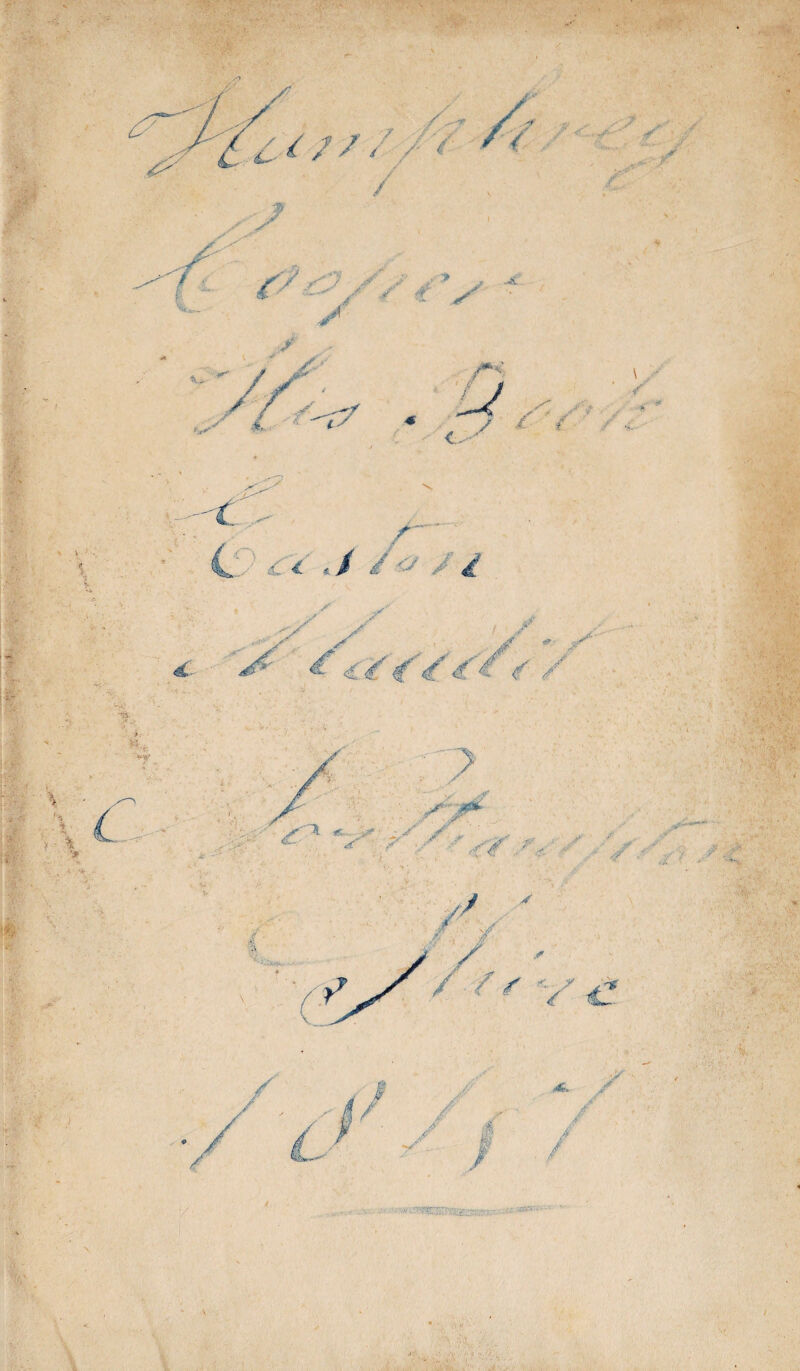 Humphrey
Cooper
His Book
Easton
Maudit
Northampton
Shire
1847